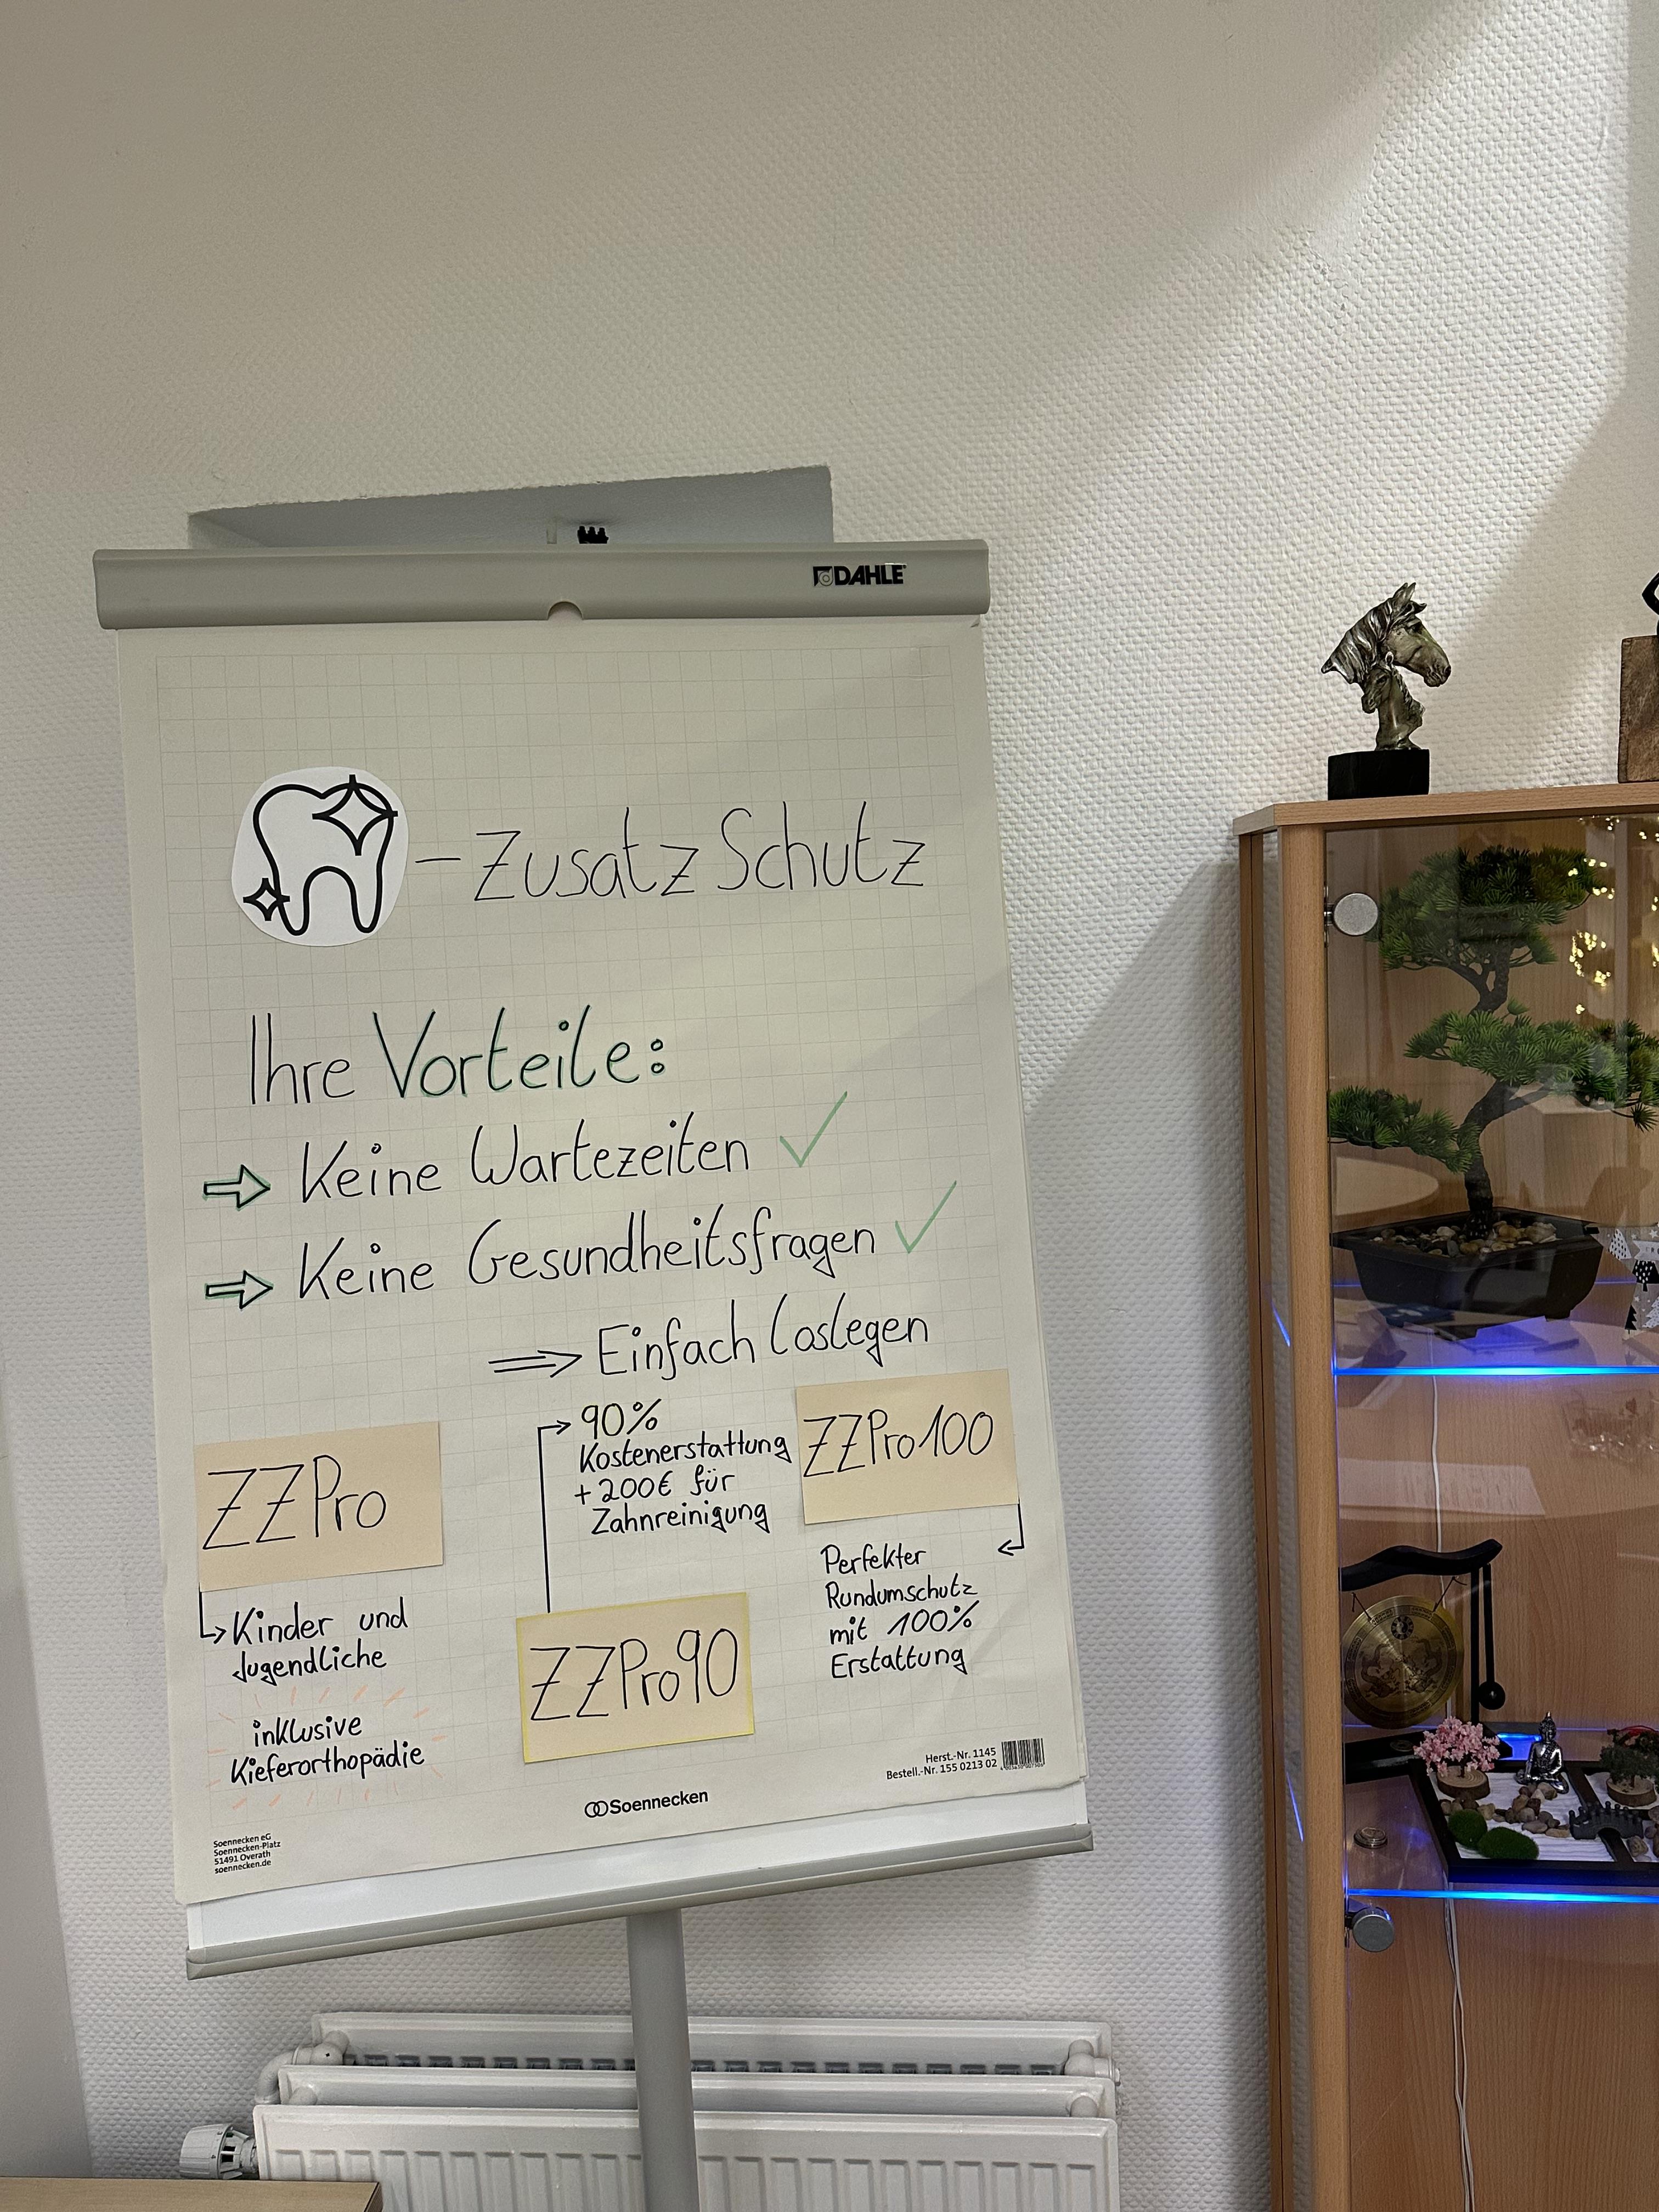 DAHLE
- Zusatz Schutz
Ihre Vorteile:
⇒ Keine Wartezeiten ✓
⇒ Keine Gesundheitsfragen ✓
⇒ Einfach loslegen
ZZPro
↳ Kinder und
Jugendliche
inklusive
Kieferorthopädie
→ 90%
Kostenerstattung
+ 200€ für
Zahnreinigung
ZZPro90
ZZPro100
Perfekter
Rundumschutz
mit 100%
Erstattung
Herst.-Nr. 1145
Bestell.-Nr. 155 0213 02
Soennecken
Soennecken eG
Soennecken-Platz
51491 Overath
soennecken.de